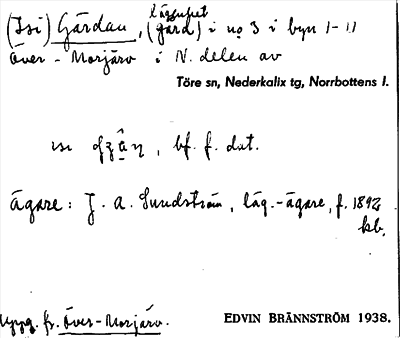 lägenhet
(Isi) Gårdan, (gård) i no 3 i byn 1-11
Över-Morjärv i N. delen av
Töre sn, Nederkalix tg, Norrbottens l.
bf. f. dat.
ägare: J. A. Sundström, läg.-ägare, f. 1892
kb.
Uppg. fr. Över-Morjärv.
EDVIN BRÄNNSTRÖM 1938.